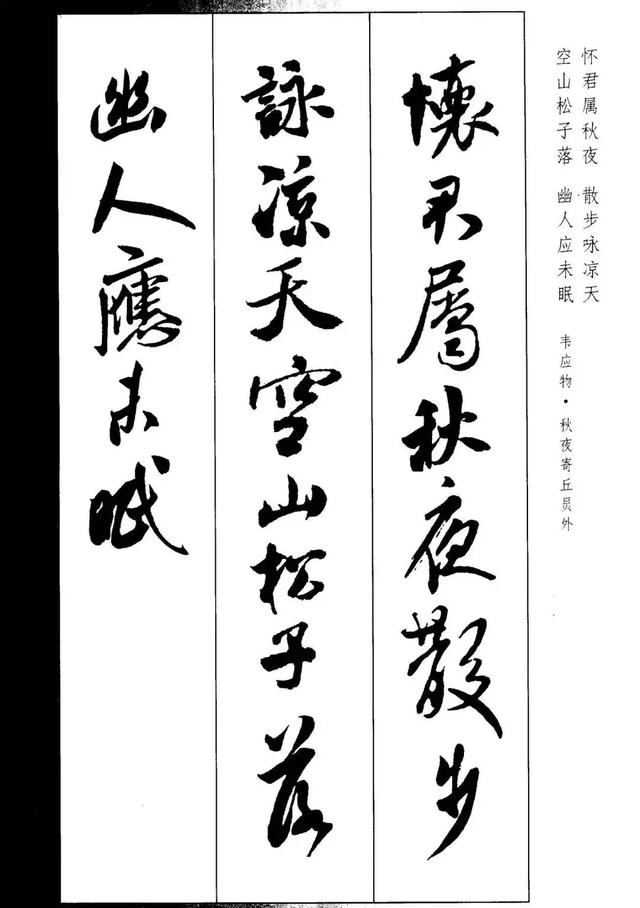 怀君属秋夜 散步咏凉天
空山松子落 幽人应未眠
韦应物·秋夜寄丘员外
懷君屬秋夜散步
詠凉天空山松子落
幽人應未眠